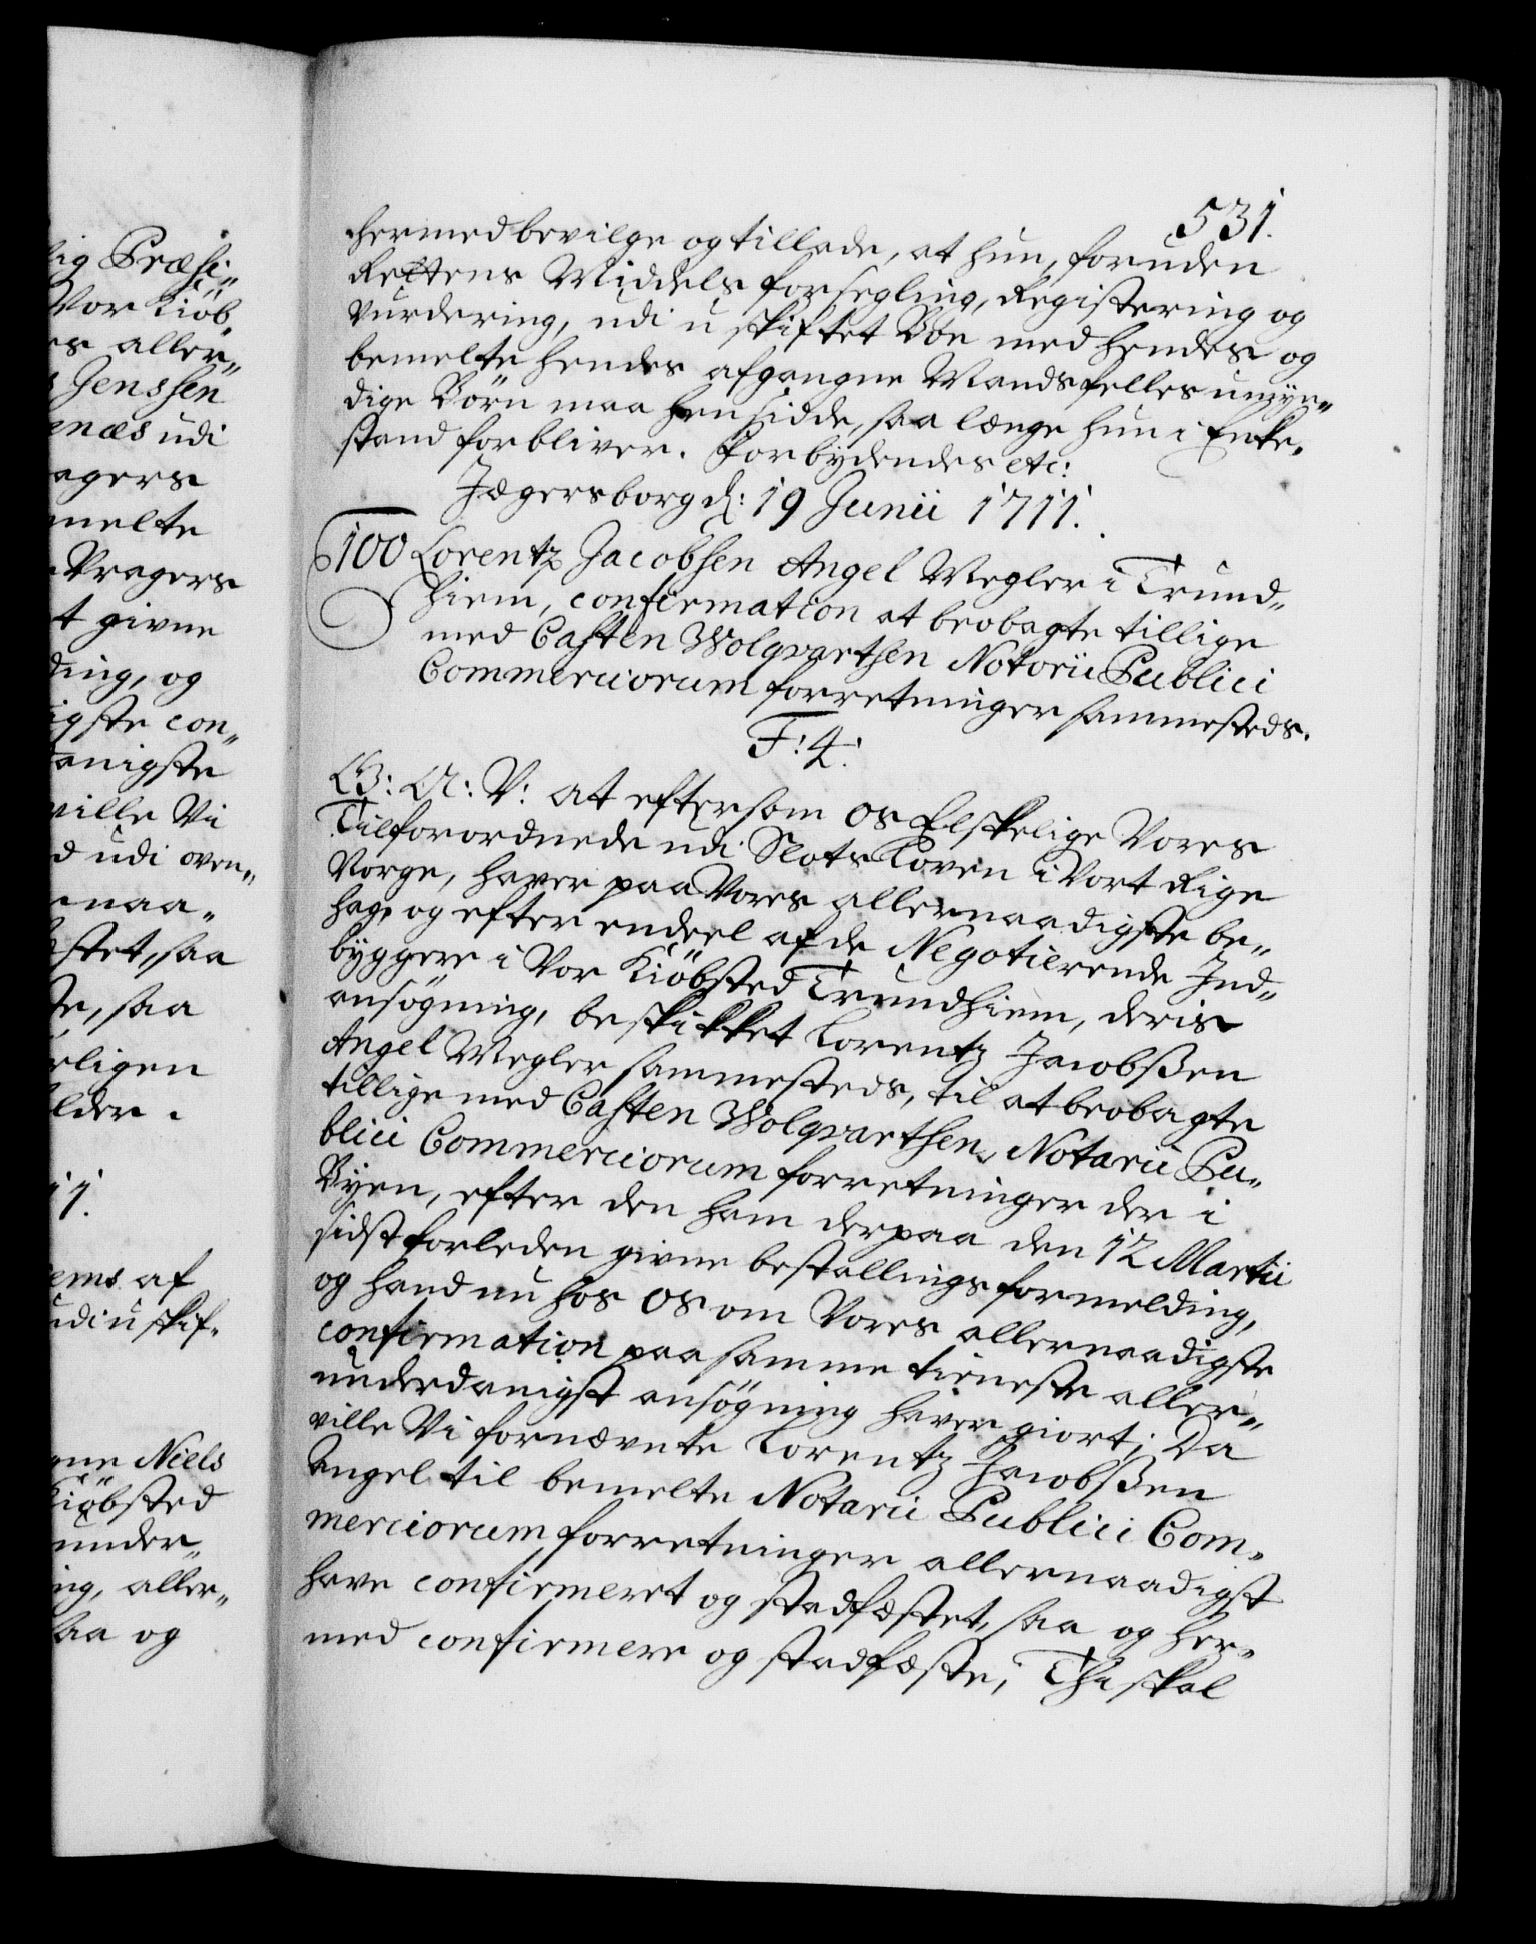 lig Præsi„
Vor Kiöb„
es aller„
s Jenssen
enæs udi
agers
melte
Vragers
t givne
ding, og
igste con„
danigste
ville Vi
d udi oven„
naa„
stet, saa
te, saa
erligen
lder.
11.
ems af
udi uskif„
gne Niels
Kiöbsted
under„
ing, aller„
saa og
531.
hermed bevilge og tillade, at hun, foruden
Rettens Middels forsegling, Registering og
Vurdering, udi uskiftet Boe med hendes og
bemelte hendes afgangne Mands felles umyn„
dige Börn maa hensidde, saa længe hun i Enke„
stand forbliver. Forbydendes etc:
Jægersborg d: 19 Junii 1711.
100 Lorentz Jacobsen Angel Megler i Trund„
hiem, confirmation at beobagte tillige
med Casten Wolqvartsen Notorii Publici
Commerciorum forretninger sammesteds.
F: 4.
G: A: V: at eftersom os Elskelige Vores
Tilforordnede udi Slots Loven i Vort Rige
Norge, haver paa Vores allernaadigste be„
hag, og efter endeel af de Negotierende Ind„
byggere i Vor Kiöbsted Trundhiem, deris
ansögning, beskikket Lorentz Jacobßen
Angel Megler sammesteds, til at beobagte
tillige med Casten Wolqvartsen, Notarii Pu„
blici Commerciorum forretninger der i
Byen, efter den ham derpaa den 12 Martii
sidstforleden givne bestallings formelding,
og hand nu hos os om Vores allernaadigste
confirmation paa samme tieneste aller„
underdanigst ansögning haver giort; Da
ville Vi fornævnte Lorentz Jacobßen
Angel til bemelte Notarii Publici Com„
merciorum forretninger allernaadigst
have confirmeret og stadfæstet, saa og her„
med confirmere og stadfæste; Thi skal